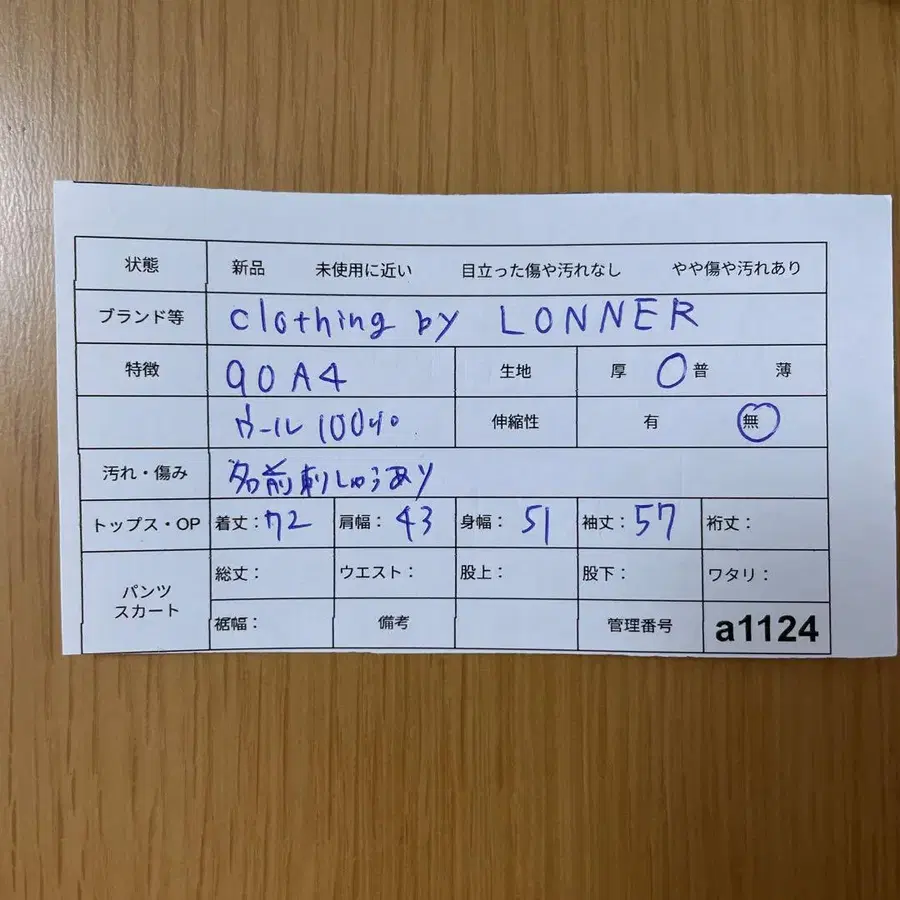 状態 新品 未使用に近い 目立った傷や汚れなし やや傷や汚れあり
ブランド等 clothing by LONNER
特徴 90A4 生地 厚 普 薄
ウール100% 伸縮性 有 無
汚れ・傷み 名前刺しゅうあり
トップス・OP 着丈：72 肩幅：43 身幅：51 袖丈：57 裄丈：
パンツ スカート 総丈： ウエスト： 股上： 股下： ワタリ：
裾幅： 備考 管理番号 a1124